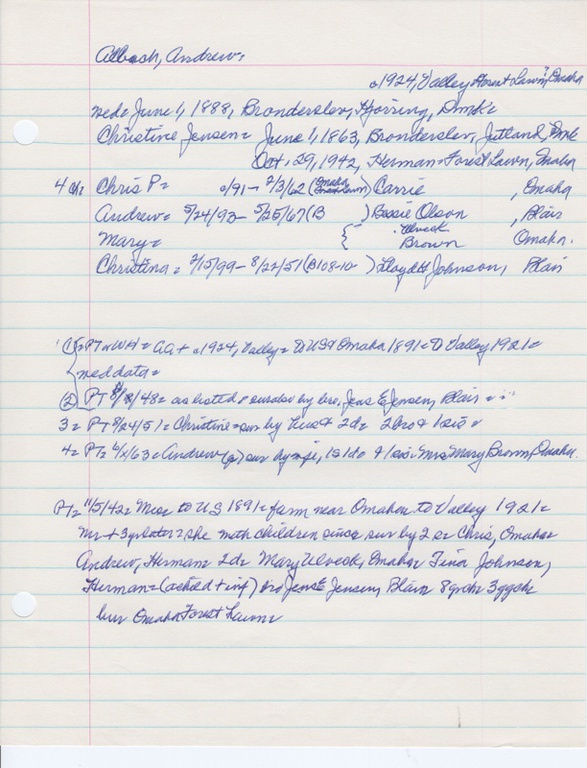 Albach, Andrew=
c1924, Valley Forest Lawn?, Omaha
wed= June 1, 1888, Bronderslev, Hjorring, Dmk=
Christine Jensen= June 1, 1863, Bronderslev, Jutland, Dmk
Oct. 29, 1942, Herman= Forest Lawn, Omaha
4 Ch= Chris P= c/91- 7/3/62 (Omaha Forest Lawn) Carrie , Omaha
Andrew= 5/24/93- 5/25/67 (B ) Bessie Olson , Blair
Mary= { Ulveck
Brown Omaha.
Christina= 7/15/99- 8/22/51 (B108-10- ) Lloyd H Johnson, Blair
① =PT = AA+ c1924, Valley= to US & Omaha 1891= to Valley 1921=
wed date=
② PT 8/48= as listed = by bro, Jens E Jensen, Blair =
3= PT 8/24/51= Christine= sur by hus & 2d= 2bro & 1sis=
4= PT= 63= Andrew sur by wife, 1s 1d= & 1sis= Mrs Mary Brown, Omaha.
PT= 11/5/42= to US 1891= farm near Omaha= to Valley 1921=
Mr + 3yrs later= she with children since= sur by 2s= Chris, Omaha=
Andrew, Herman= 2d= Mary Ulveck, Omaha= Tina Johnson,
Herman= (a child + inf) bro Jens E Jensen, Blair 8grch= 3ggch=
bur Omaha Forest Lawn=